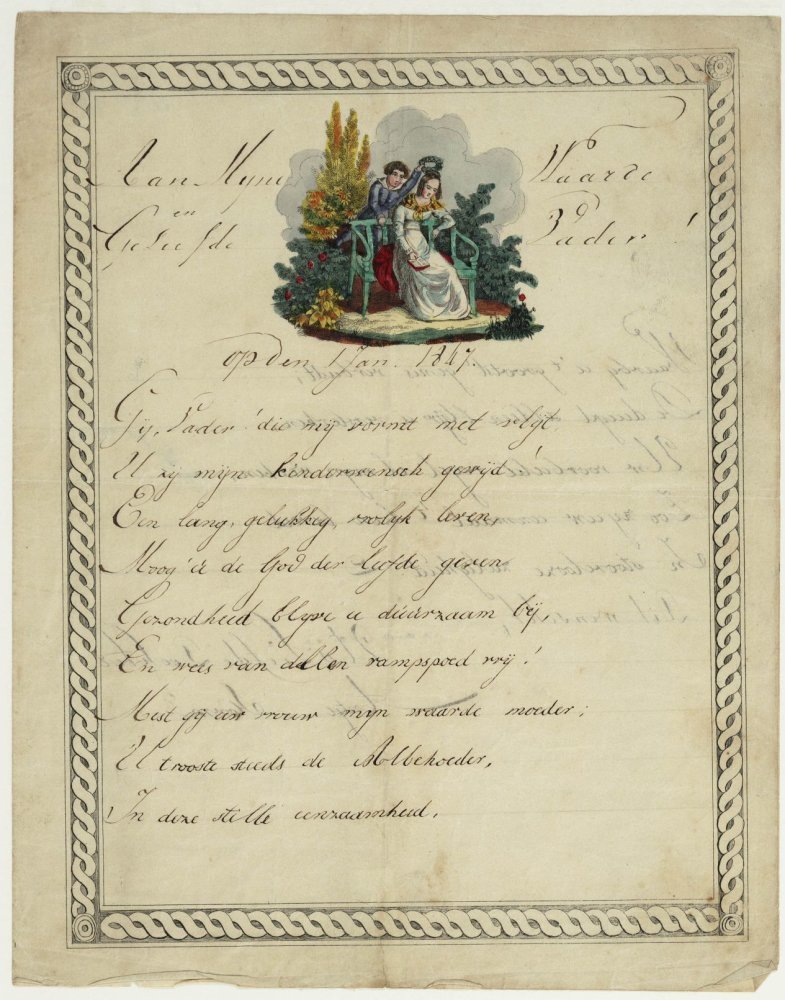 Aan Mijne Waarde
en
Geliefde Vader!
op den 1 Jan. 1847.
Gij, Vader! die mij vormt met vlijt,
U zij mijn kinderwensch gewijd!
Een lang, gelukkig, vrolijk leven,
Moog' U de God der liefde geven
Gezondheid blijve u duurzaam bij,
En wees van allen rampspoed vrij!
Mist gij uw vrouw mijn waarde moeder;
U trooste steeds de Albehoeder,
In deze stille eenzaamheid.